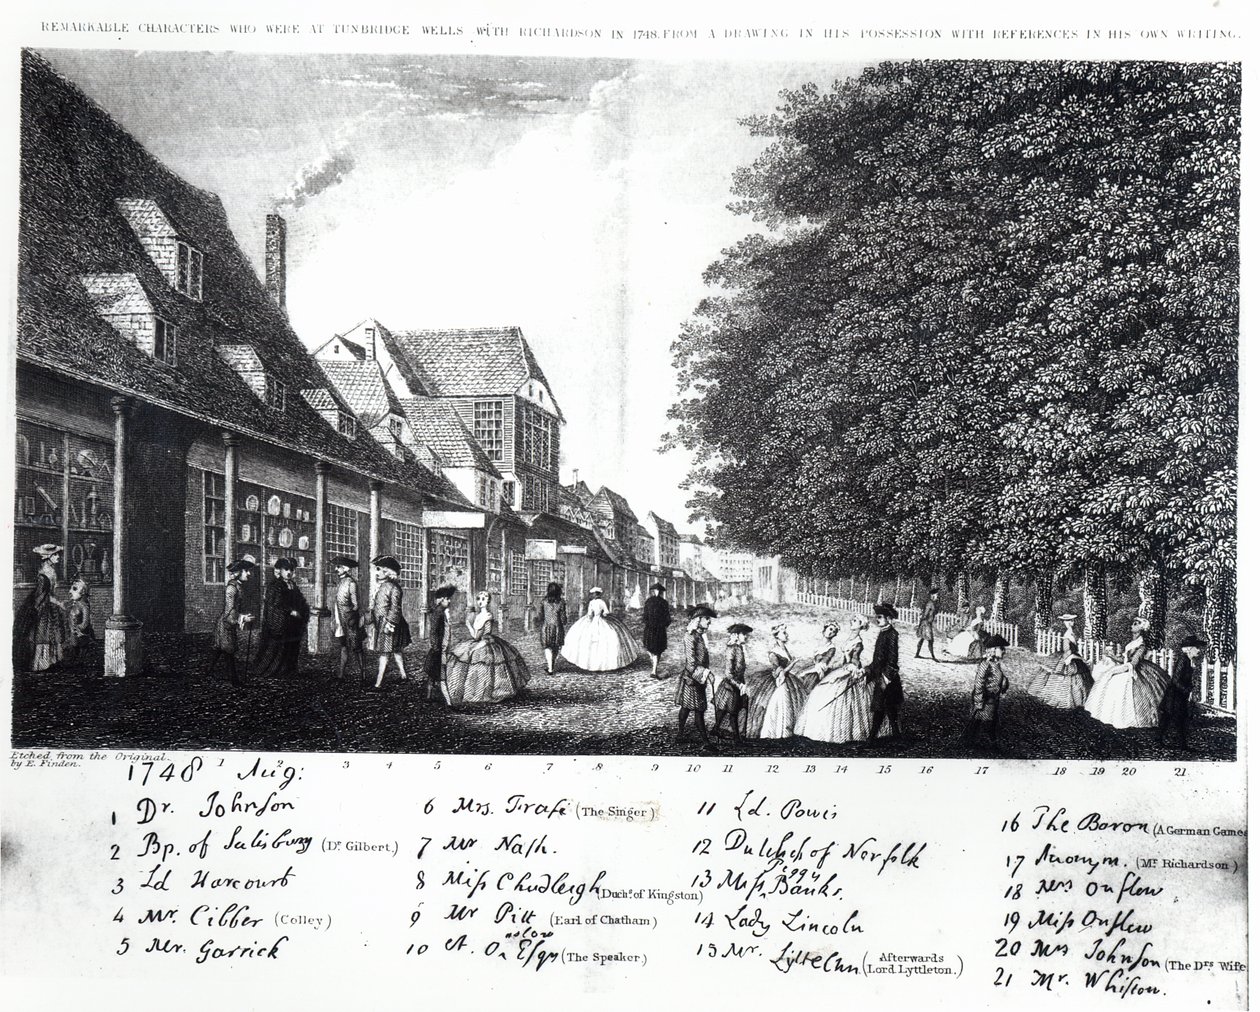 REMARKABLE CHARACTERS WHO WERE AT TUNBRIDGE WELLS WITH RICHARDSON IN 1748. FROM A DRAWING IN HIS POSSESSION WITH REFERENCES IN HIS OWN WRITING.
Etched from the Original.
by E. Finden.
1 2 3 4 5 6 7 8 9 10 11 12 13 14 15 16 17 18 19 20 21
1748 Aug:
1 Dr. Johnson
2 Bp. of Salisbury (Dr. Gilbert.)
3 Ld Harcourt
4 Mr. Cibber (Colley)
5 Mr. Garrick
6 Mrs. Frasi (The Singer)
7 Mr Nash.
8 Miss Chudleigh (Duchs. of Kingston)
9 Mr Pitt (Earl of Chatham)
10 A. Onslow Esqr (The Speaker.)
11 Ld. Powis
12 Dutchess of Norfolk
13 Miss Peggy Banks.
14 Lady Lincoln
15 Mr. Lyttelton (Afterwards Lord Lyttleton.)
16 The Baron (A German Games
17 Anonym. (Mr Richardson)
18 Mrs Onslow
19 Miss Onslow
20 Mrs Johnson (The Drs Wife
21 Mr. Whiston.